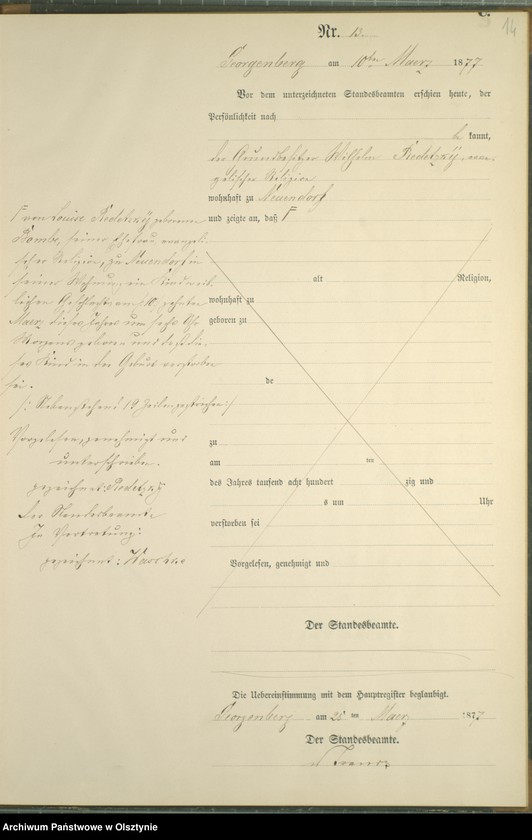 14
Nr. 13
Georgenberg am 10ten Maerz 1877
Vor dem unterzeichneten Standesbeamten erschien heute, der
Persönlichkeit nach
be kannt,
der Grundbesitzer Wilhelm Redetzky evan-
gelischer Religion
wohnhaft zu Neuendorf
und zeigte an, daß F
F von Louise Redetzky geborenen
seiner Ehefrau evangeli-
scher Religion, zu Neuendorf in
seiner Wohnung ein Kind weib-
lichen Geschlechts am 10, zehnten
Maerz dieses Jahres um sechs Uhr
Morgens geboren und daß die-
ses Kind in der Geburt verstorben
sei.
/: Nebenstehend 19 Zeilen gestrichen :/
Vorgelesen, genehmigt und
unterschrieben.
gezeichnet: Redetzky
Der Standesbeamte
In Vertretung:
gezeichnet:
alt Religion,
wohnhaft zu
geboren zu
de
zu
am ten
des Jahres tausend acht hundert zig und
s um Uhr
verstorben sei
Vorgelesen, genehmigt und
Der Standesbeamte.
Die Uebereinstimmung mit dem Hauptregister beglaubigt.
Georgenberg am 25 ten Maerz 1877
Der Standesbeamte.
Archiwum Państwowe w Olsztynie